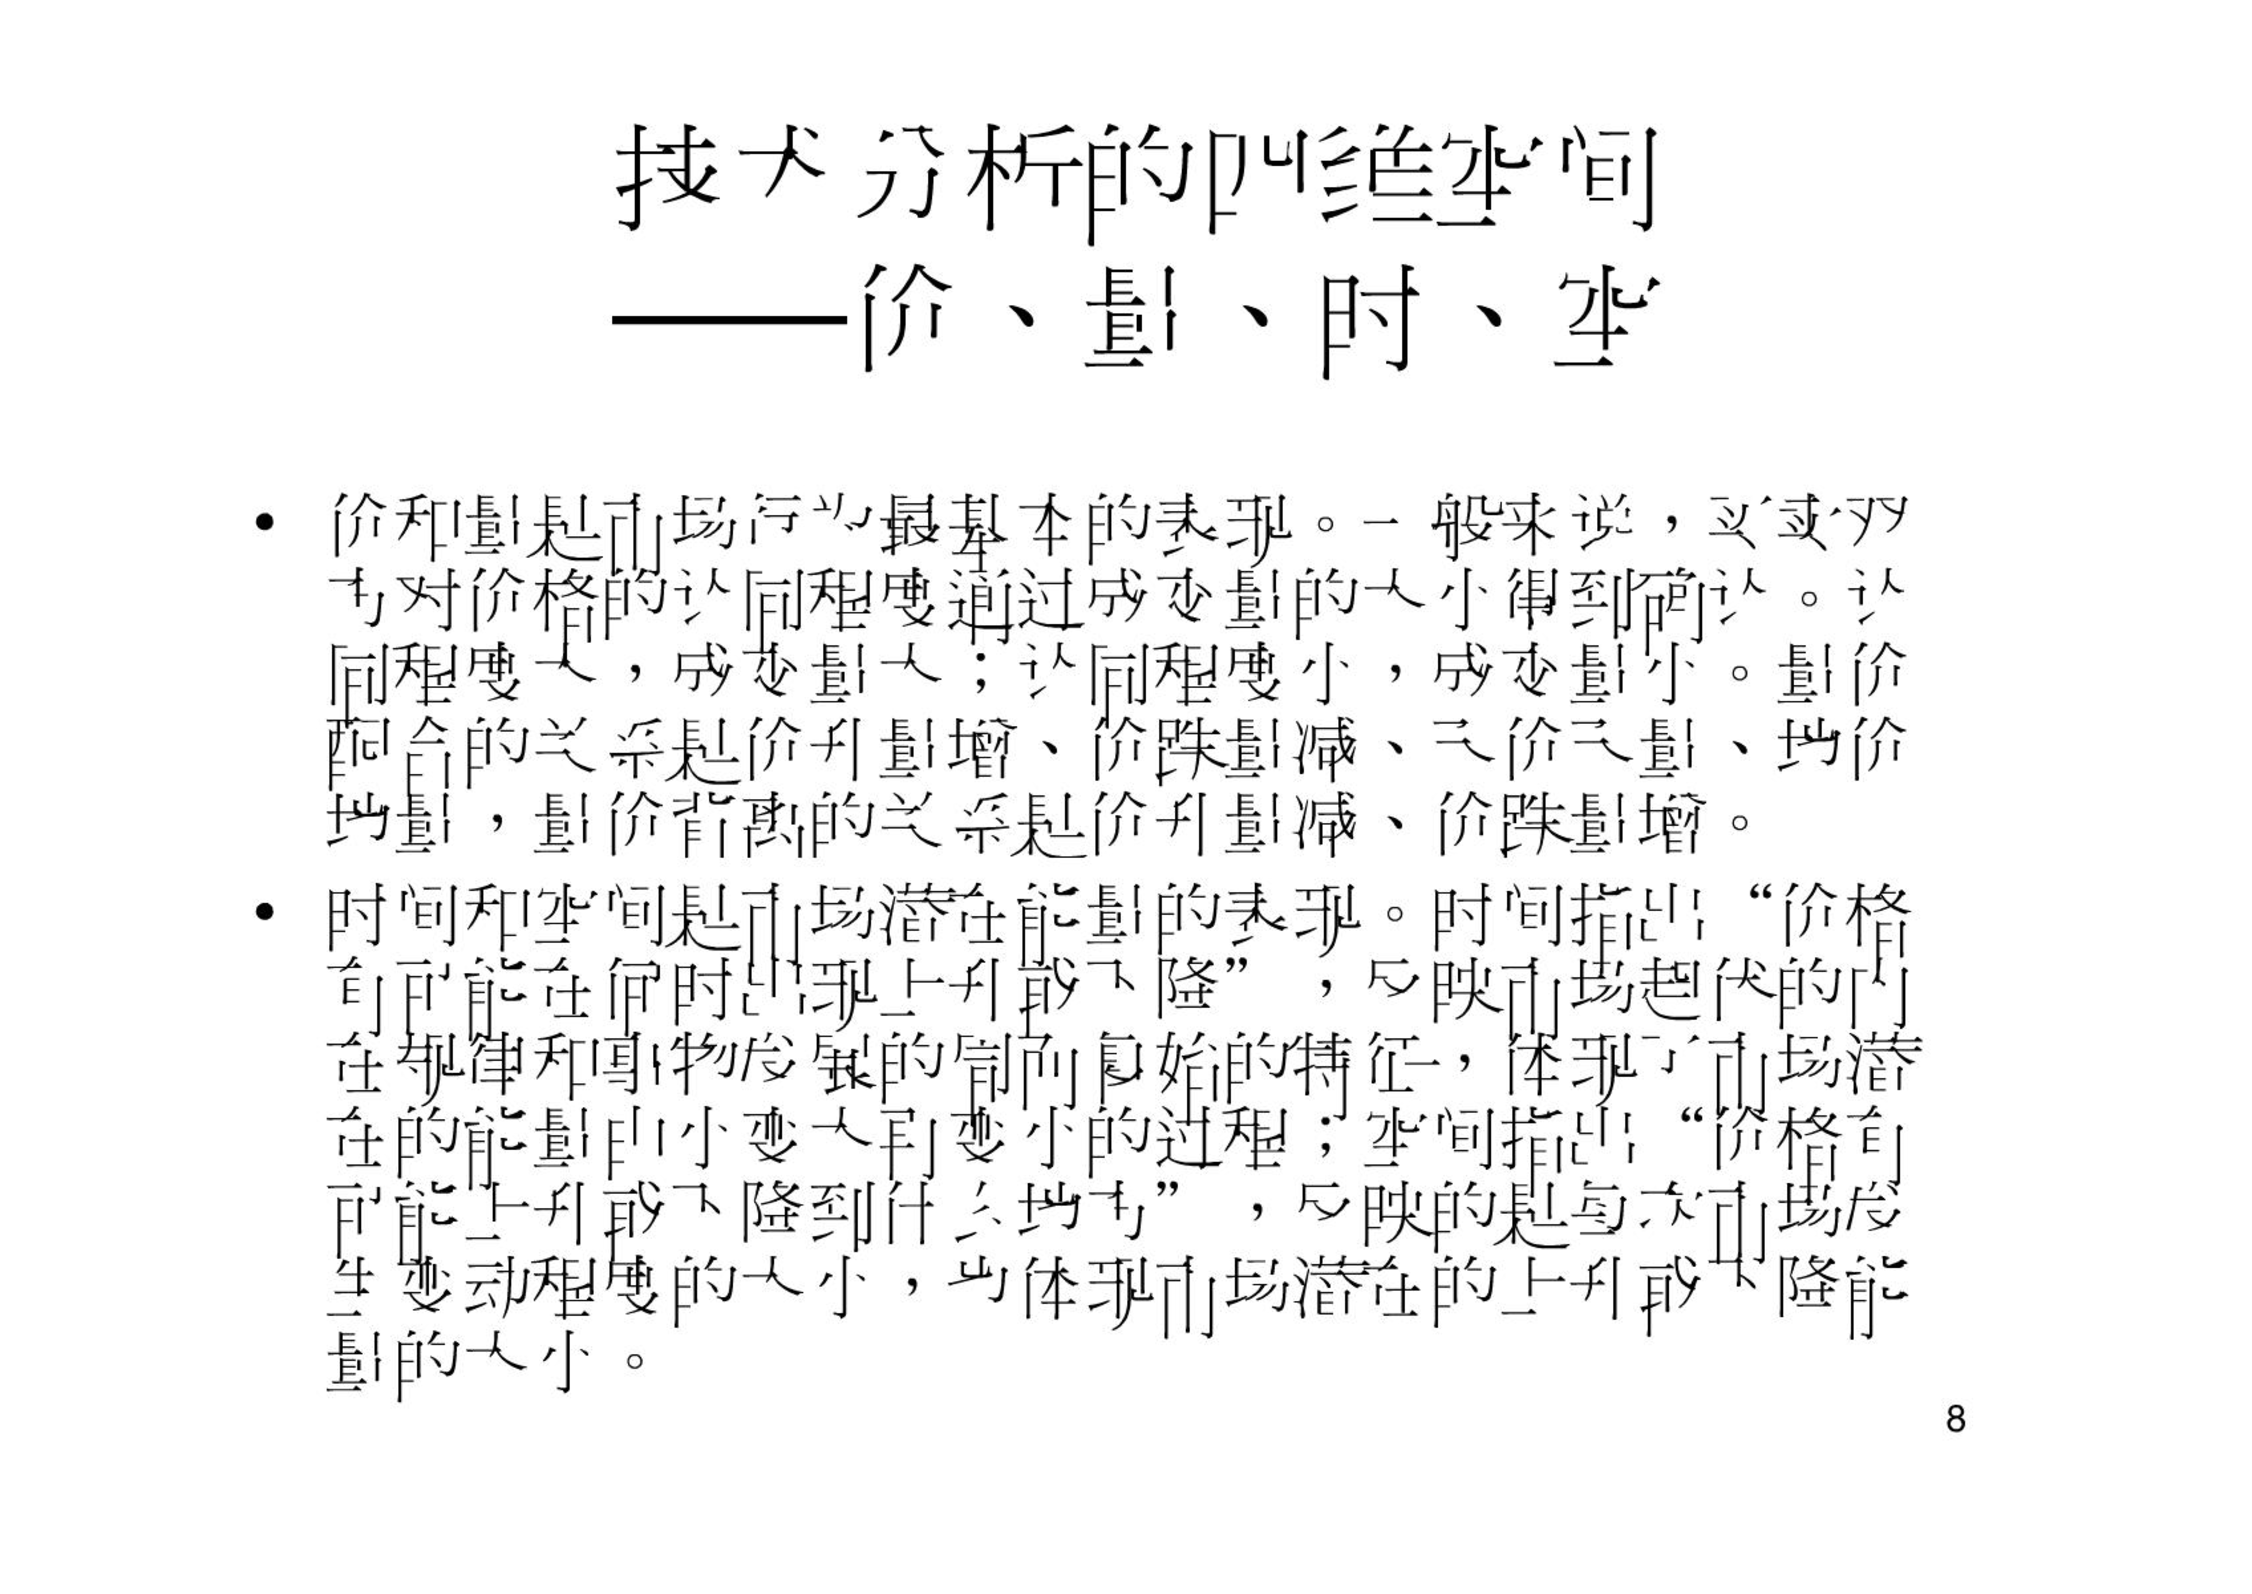 技术分析的四维空间
——价、量、时、空
• 价和量是市场行为最基本的表现。一般来说，买卖双
方对价格的认同程度通过成交量的大小得到确认。认
同程度大，成交量大；认同程度小，成交量小。量价
配合的关系是价升量增、价跌量减、天价天量、地价
地量，量价背离的关系是价升量减、价跌量增。
• 时间和空间是市场潜在能量的表现。时间指出“价格
有可能在何时出现上升或下降”，反映市场起伏的内
在规律和事物发展的周而复始的特征，体现了市场潜
在的能量由小变大再变小的过程；空间指出“价格有
可能上升或下降到什么地方”，反映的是每次市场发
生变动程度的大小，也体现市场潜在的上升或下降能
量的大小。
8